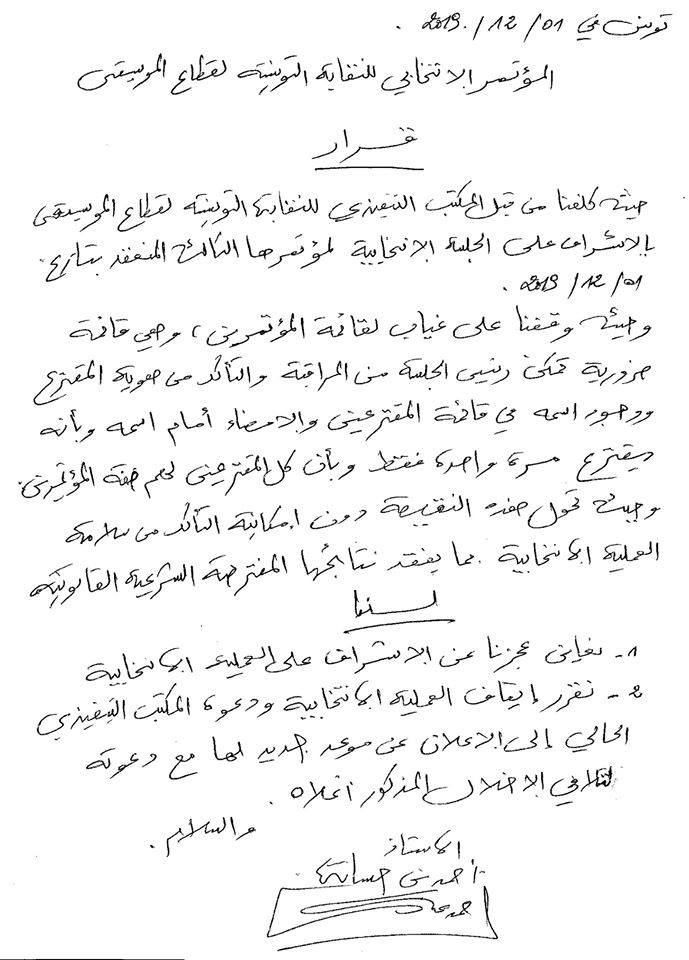 تونس في 01 / 12 / 2019 .
المؤتمر الانتخابي للنقابة التونسية لقطاع الموسيقى
قرار
حيث كلفنا من قبل المكتب التنفيذي للنقابة التونسية لقطاع الموسيقى
بالاشراف على الجلسة الانتخابية لمؤتمرها الثالث المنعقد بتاريخ
01 / 12 / 2019 .
وحيث وقفنا على غياب لقائمة المؤتمرين ، وهي قائمة
ضرورية تمكن رئيس الجلسة من المراقبة والتأكد من هوية المقترع
ووجود اسمه في قائمة المقترعين والامضاء أمام اسمه وبأنه
يقترع مرة واحدة فقط وبأن كل المقترعين لهم صفة المؤتمرين .
وحيث تحول هذه النقيصة دون امكانية التأكد من سلامة
العملية الانتخابية بما يفقد نتائجها المفترضة الشرعية القانونية
لهذا
1 - نعاين عجزنا عن الاشراف على العملية الانتخابية
2 - نقرر إيقاف العملية الانتخابية ودعوة المكتب التنفيذي
الحالي إلى الاعلان عن موعد جديد لها مع دعوته
لتلافي الاخلال المذكور أعلاه .
والسلام .
الأستاذ
أحمد بن حسانة